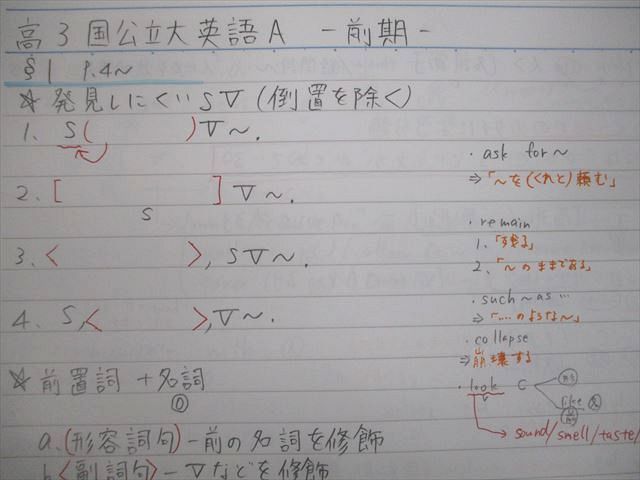 高3国公立大英語A －前期－
§1 P.4～
☆発見しにくいSV（倒置を除く）
1. S( )V～.
2. [ ]V～.
S
3. < >, SV～.
4. S,< >,V～.
☆前置詞＋名詞
O
a.(形容詞句)－前の名詞を修飾
b.<副詞句>－Vなどを修飾
・ask for～
⇒「～を(くれと)頼む」
・remain
1.「残る」
2.「～のままである」
・such～as…
⇒「…のような～」
・collapse
⇒崩壊する
・look C
V
like 名
前
→ sound/smell/taste/